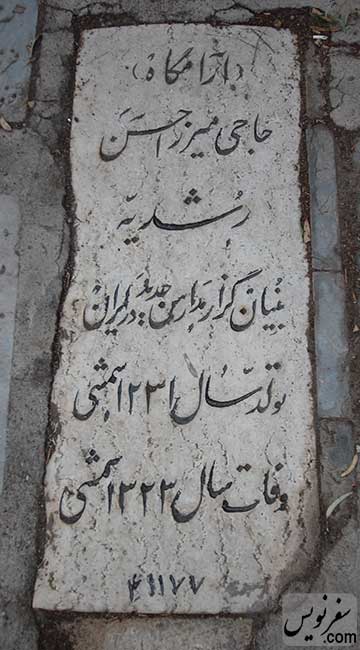 (آرامگاه)
حاجی میرزا حسن
رشدیّه
بنیان گزار مدارس جدید در ایران
تولد سال ۱۲۳۱ شمسی
وفات سال ۱۳۲۳ شمسی
۴۱۱۷۷
سفرنویس
.com